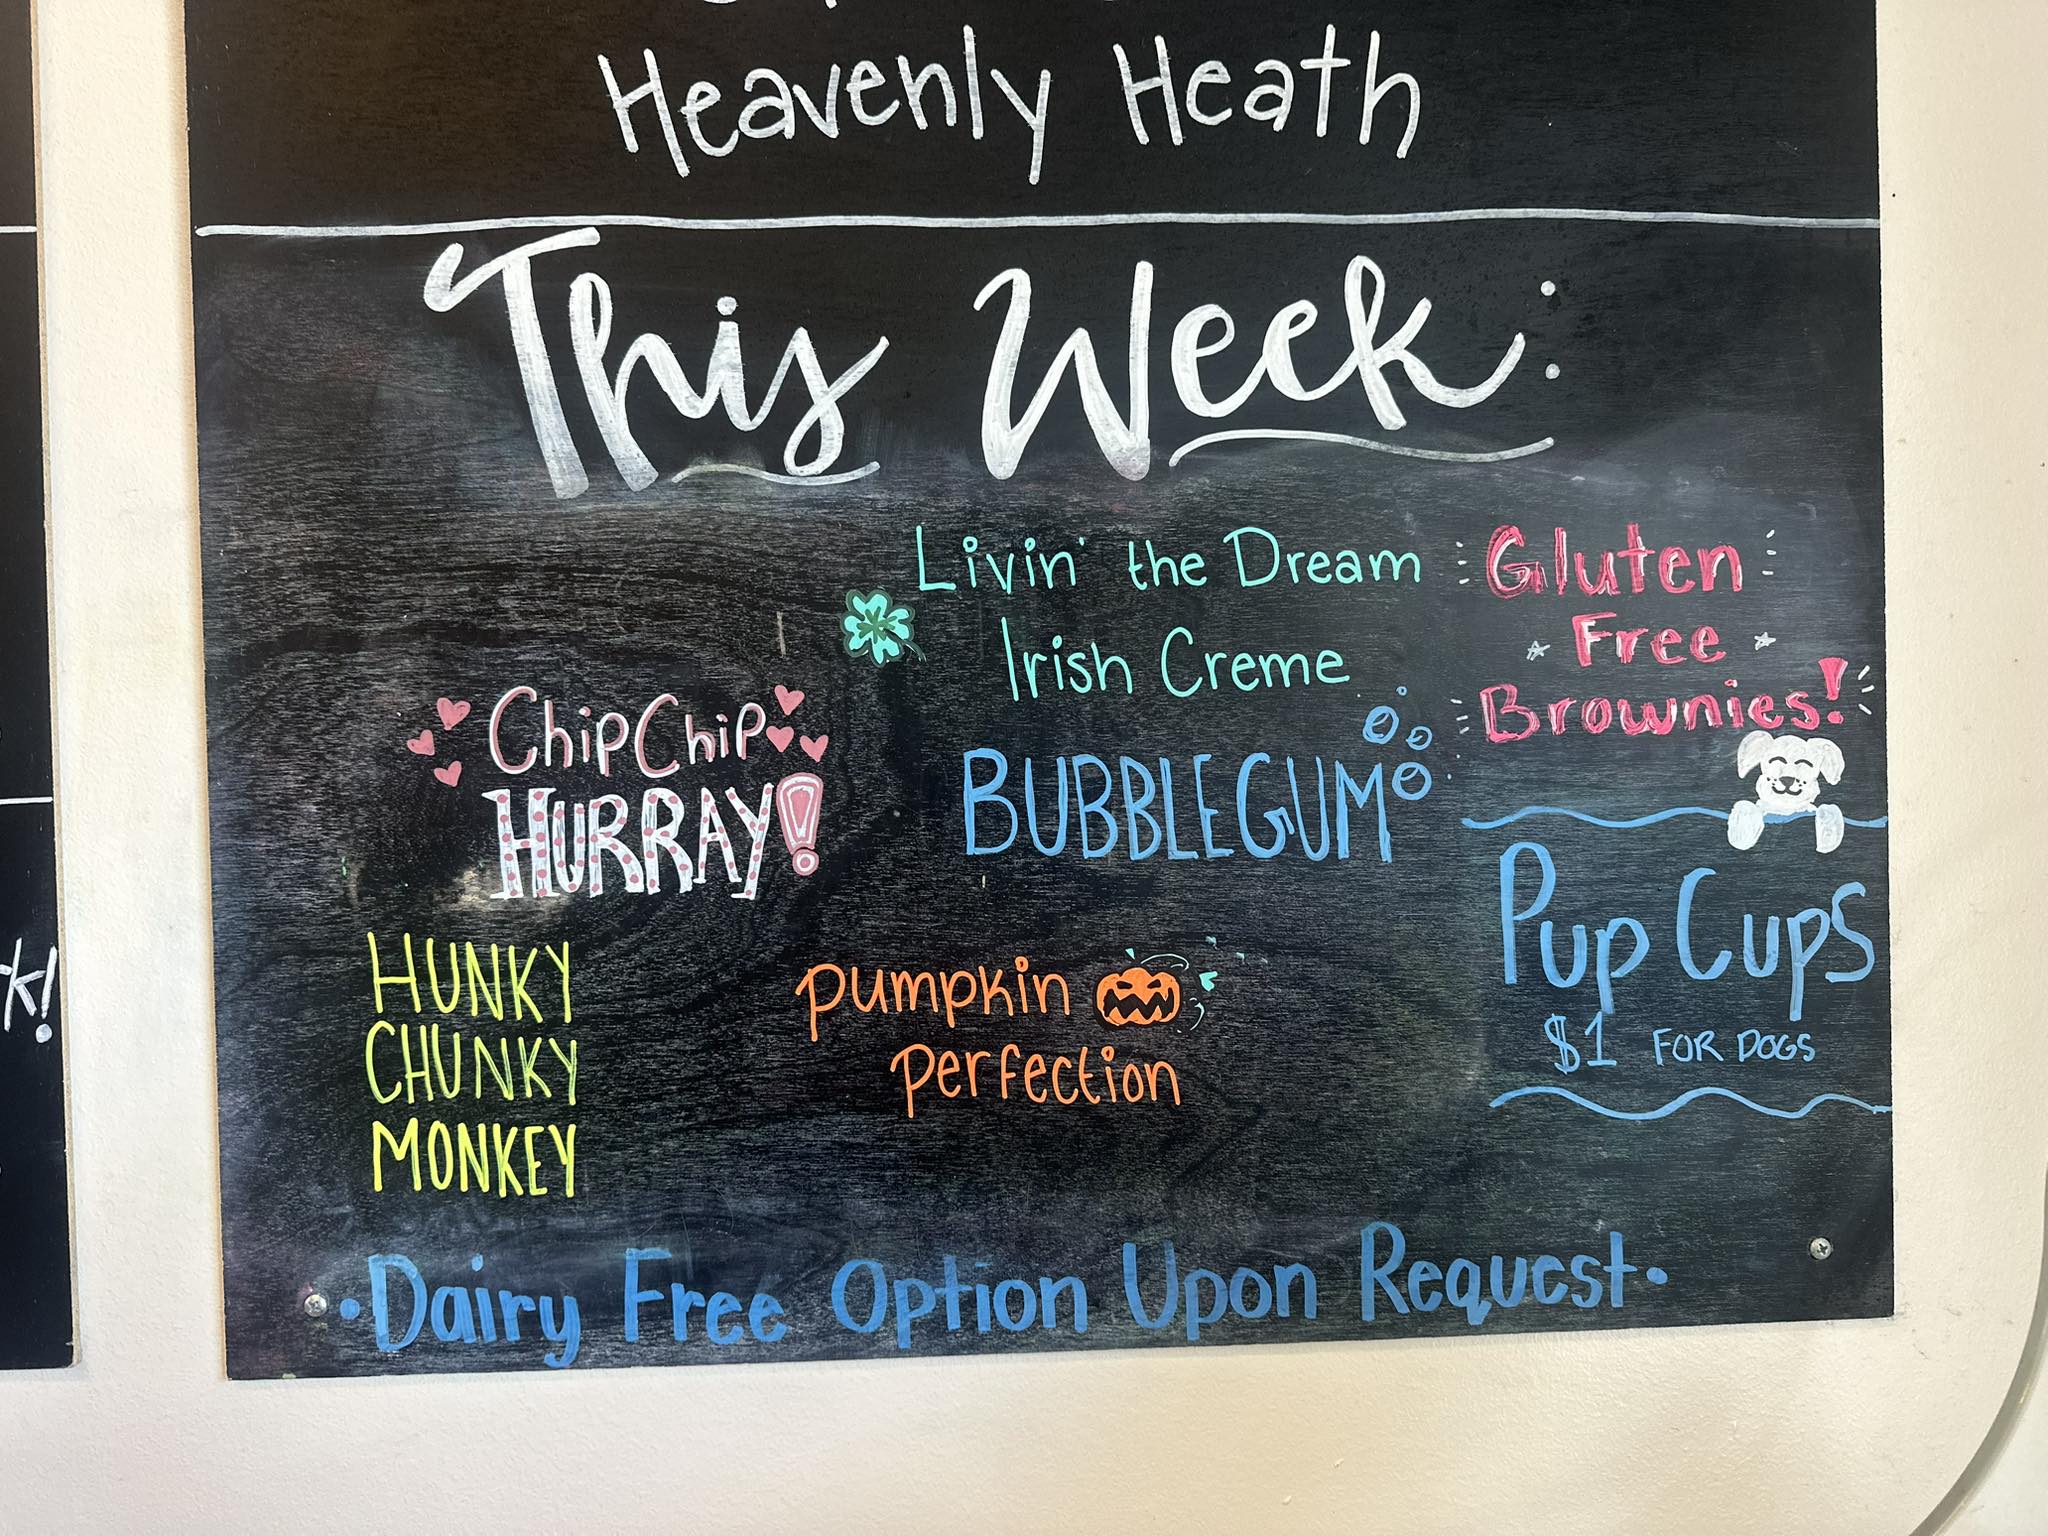 Heavenly Heath
This Week:
Livin' the Dream
Irish Creme
Gluten
Free
Brownies!
Chip Chip
HURRAY!
BUBBLEGUM
Pup Cups
$1 FOR DOGS
HUNKY
CHUNKY
MONKEY
Pumpkin
Perfection
•Dairy Free Option Upon Request•